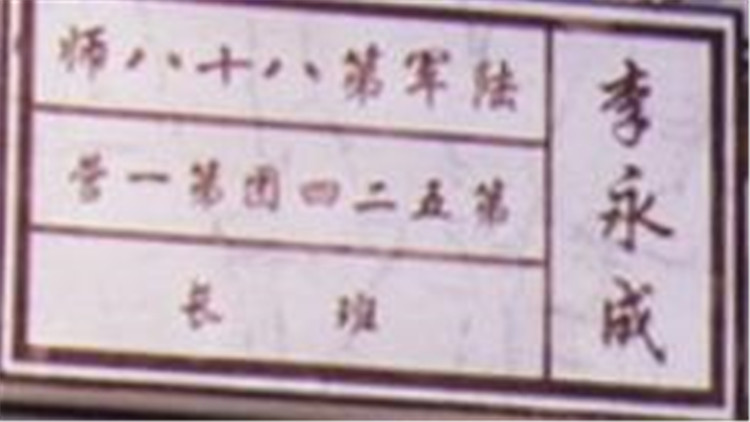 陆军第八十八师
第五二四团第一营
班长
李永成